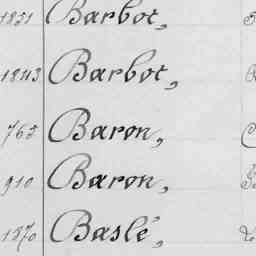 1851 Barbot,
1843 Barbot,
765 Baron,
910 Baron,
1870 Baslé,